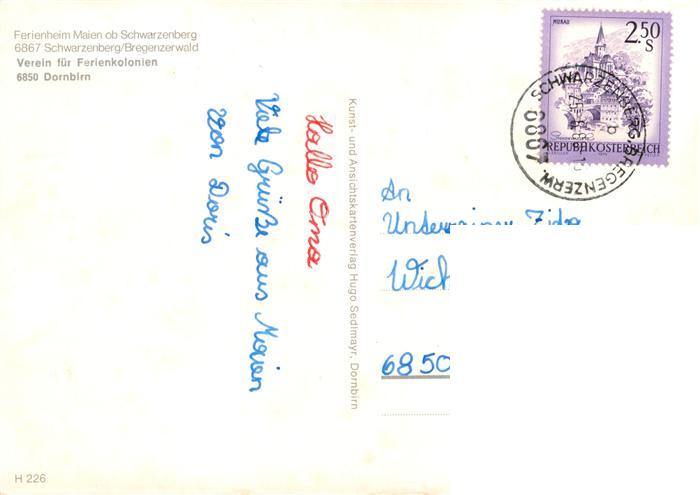 Ferienheim Maien ob Schwarzenberg
6867 Schwarzenberg/Bregenzerwald
Verein für Ferienkolonien
6850 Dornbirn
MURAU
2.50
S
REPUBLIK ÖSTERREICH
SCHWARZENBERG, BREGENZERW.
6867
Hallo Oma
Viele Grüße aus Maien
von Doris
Kunst- und Ansichtskartenverlag Hugo Sedlmayr, Dornbirn
An
6850
H 226